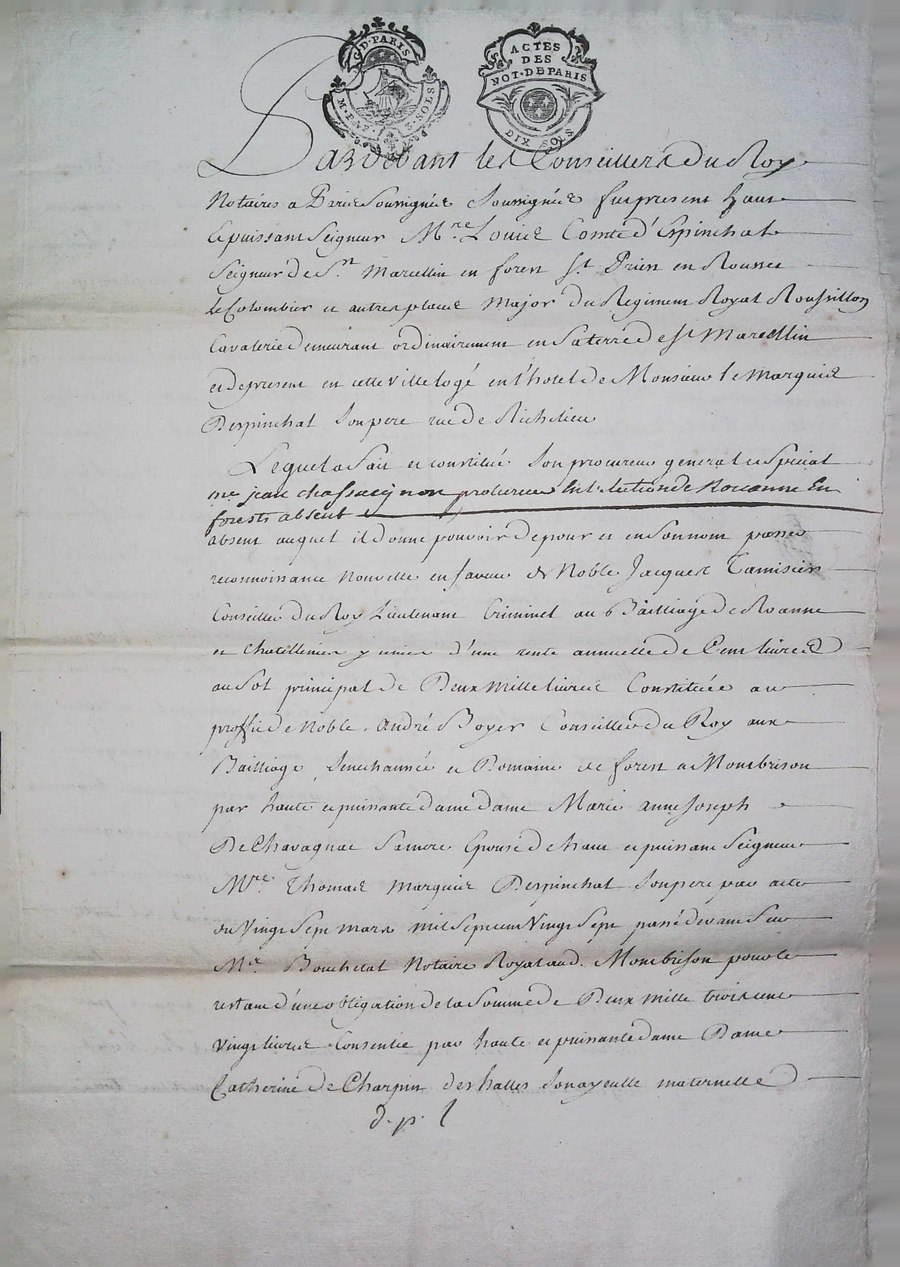 G. D. PARIS
M. PAP 2. SOLS
ACTES
DES
NOT. DE PARIS
DIX SOLS
Pardevant les Conseillers du Roy
Notaires a Paris Soussignés Soussignés fut present haut
et puissant Seigneur Mre. Louis Comte d'Espinchal
Seigneur de St. Marcellin en forest St. Priest en Rousset
le Colombier et autres places Major du Regiment Royal Roussillon
Cavalerie demeurant ordinairement en Sa terre de St Marcellin
et de present en cette Ville logé en l'hotel de Monsieur le Marquis
Despinchal Son pere rue de Richelieu
Lequel a fait et constitué Son procureur general et Special
me jean chassaing non procureur En l'election de Roüanne En
forests absent
absent auquel il donne pouvoir de pour et en Son nom passer
reconnoissance nouvelle en faveur de Noble Jacques Tamisier
Conseiller du Roy Lieutenant Criminel au Bailliage de Roanne
et Chatellenies y unies d'une rente annuelle de Cent livres
au Sol principal de Deux mille livres Constituée au
proffit de Noble André Boyer Conseiller du Roy aux
Bailliage Senechaussée et Domaine de forest a Montbrison
par haute et puissante dame dame Marie anne Joseph
De Chavagnac Sa mere Epouse de haut et puissant Seigneur
Mre. Thomas Marquis Despinchal Son pere par acte
du Vingt Sept mars mil Sept cent Vingt Sept passé devant feu
Me Bouchetal Notaire Royal aud. Montbrison pour le
restant d'une obligation de la Somme de Deux mille trois cent
vingt livres Consentie par haute et puissante dame Dame
Catherine de Charpin des halles Son ayeulle maternelle
d. p. l